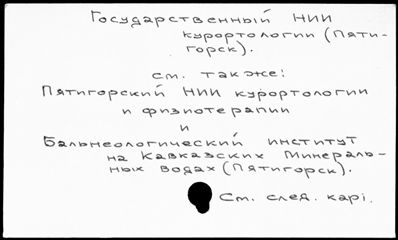 Государственный НИИ
курортологии (Пяти-
горск).
см. также:
Пятигорский НИИ курортологии
и физиотерапии
и
Бальнеологический институт
на Кавказских Минераль-
ных водах (Пятигорск).
См. след. карі.